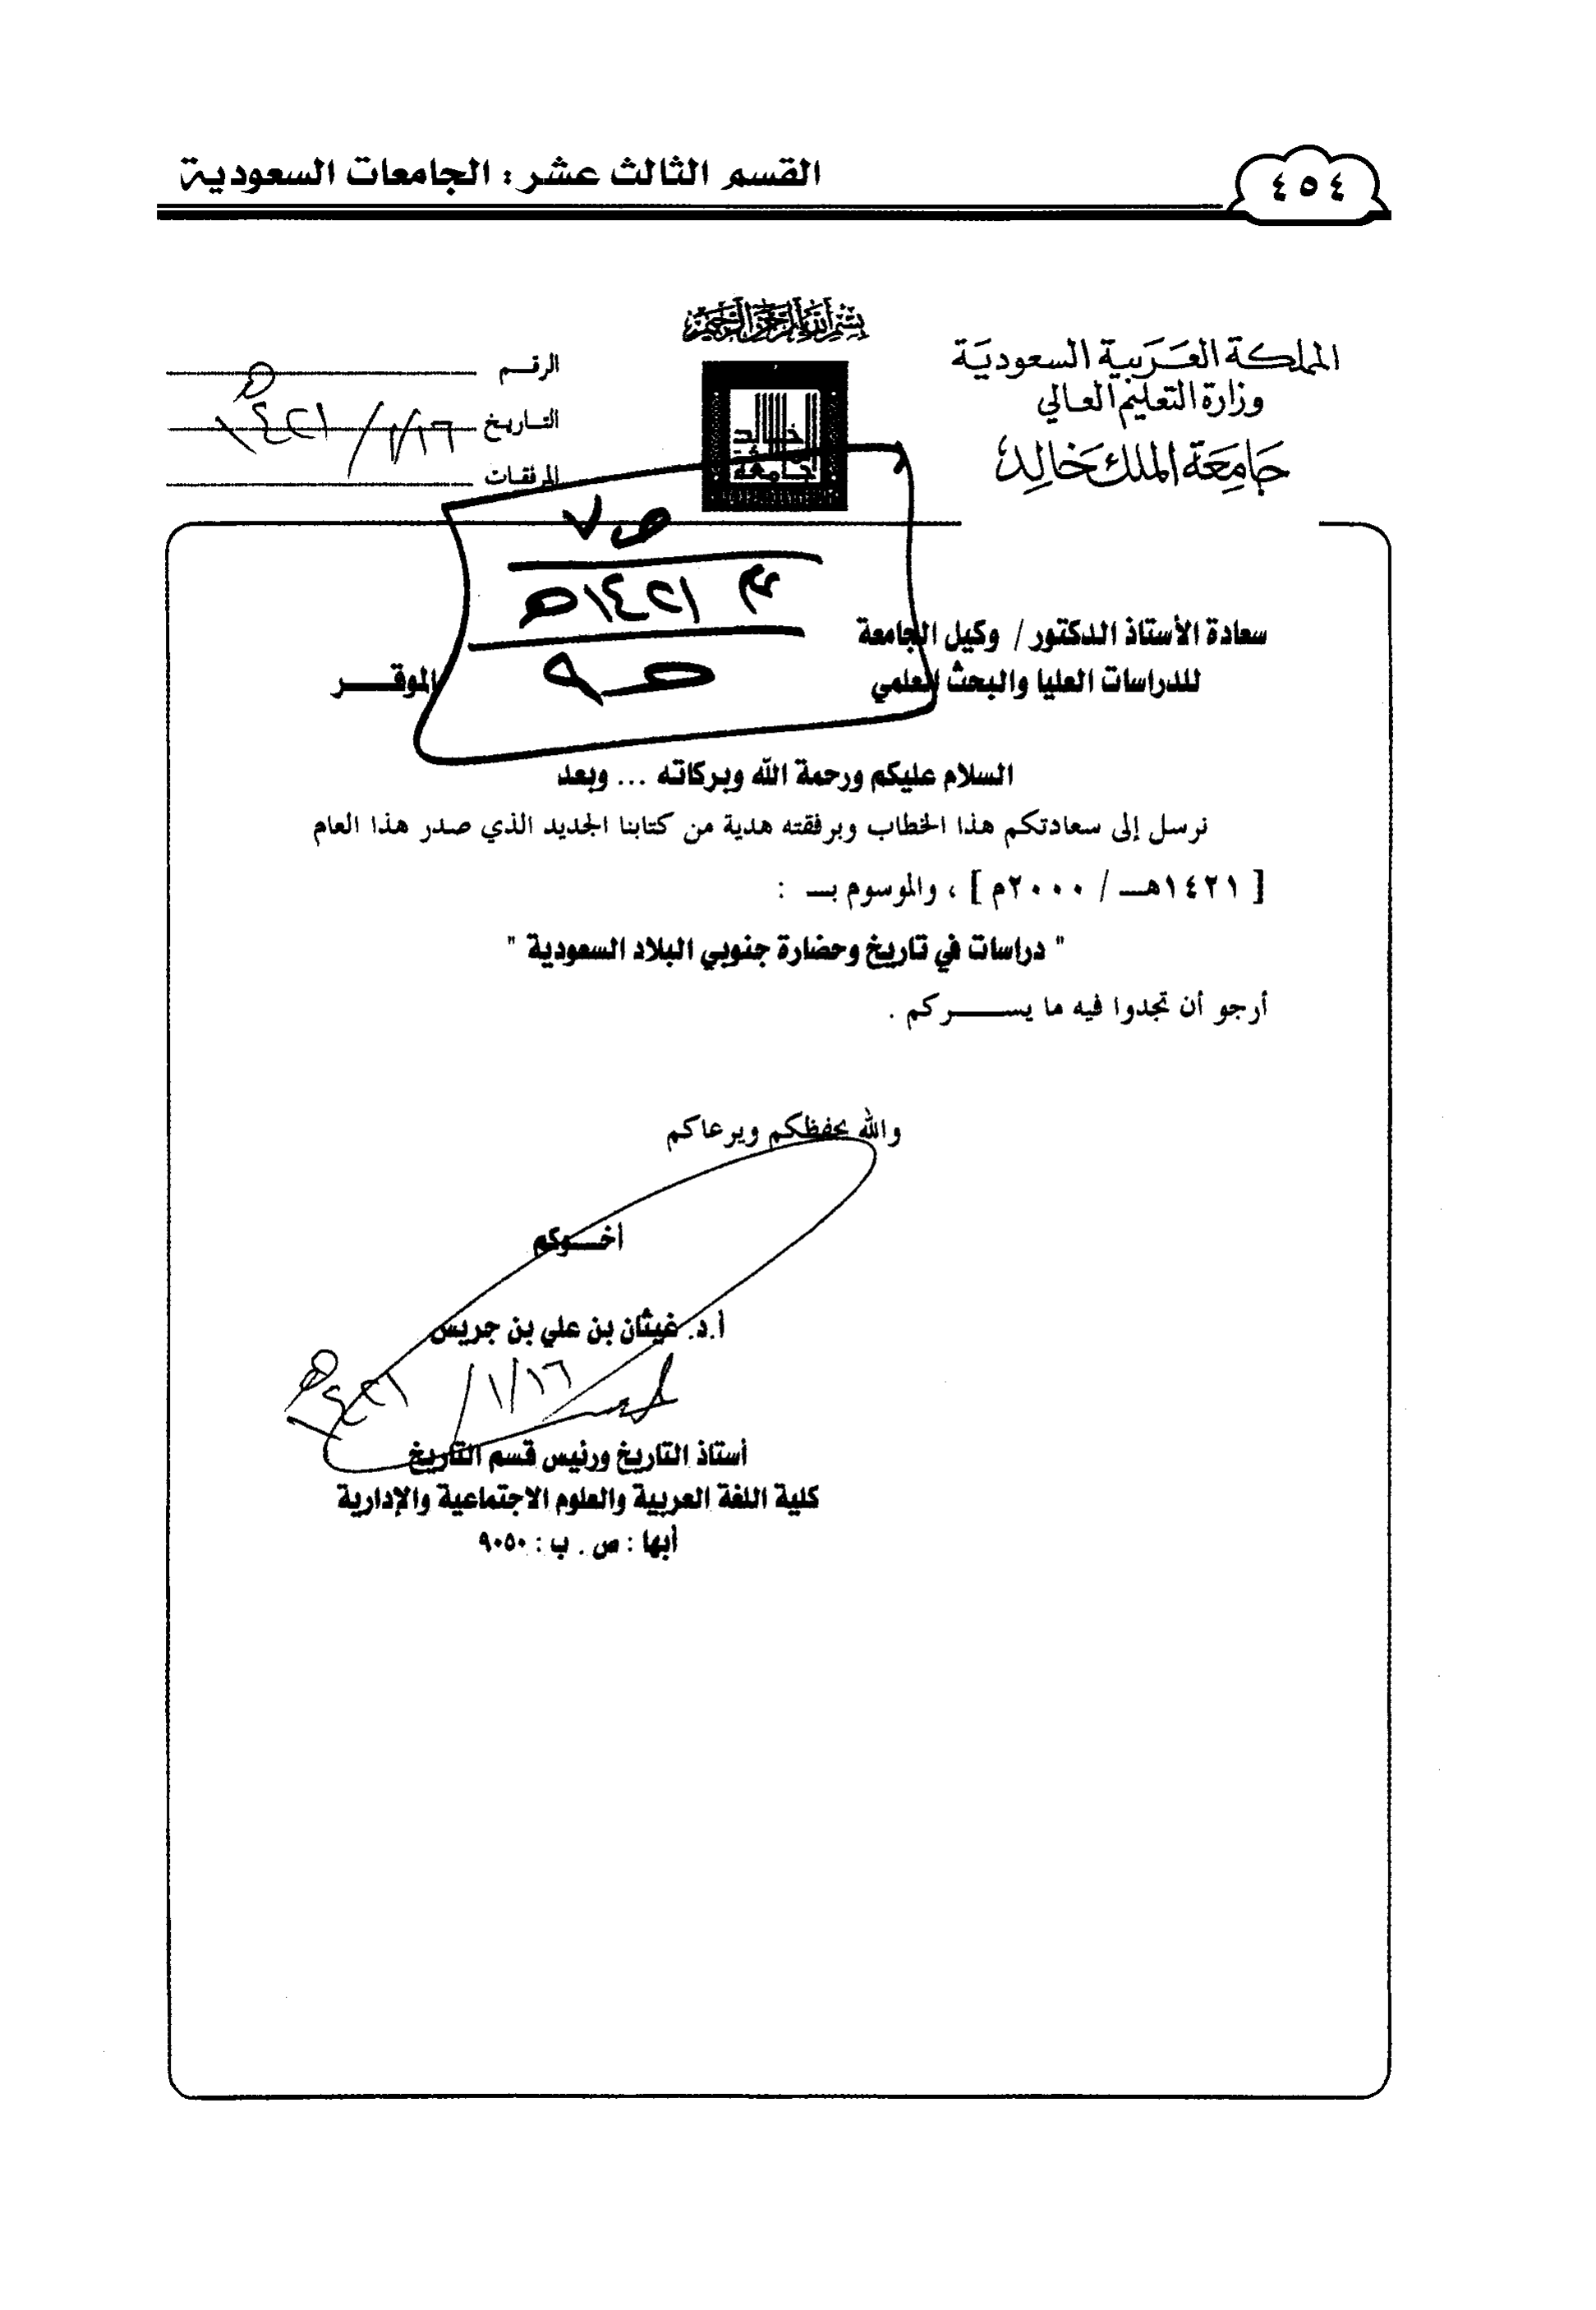 ٤٥٤
القسم الثالث عشر : الجامعات السعودية
بسم الله الرحمن الرحيم
المملكة العربية السعودية
وزارة التعليم العالي
جامعة الملك خالد
خالد
جامعة
الرقــم
التـاريخ ١٤٢١/١/١٦ هـ
المرفقات
١٤٢١هـ
سعادة الأستاذ الدكتور / وكيل الجامعة
للدراسات العليا والبحث العلمي الموقـــر
السلام عليكم ورحمة الله وبركاته ... وبعد
نرسل إلى سعادتكم هذا الخطاب وبرفقته هدية من كتابنا الجديد الذي صدر هذا العام
[ ١٤٢١هــ / ٢٠٠٠م ] ، والموسوم بــ :
" دراسات في تاريخ وحضارة جنوبي البلاد السعودية "
أرجو أن تجدوا فيه ما يســـركم .
والله يحفظكم ويرعاكم
أخــوكم
أ.د. غيثان بن علي بن جريس
١٤٢١/١/١٦هـ
أستاذ التاريخ ورئيس قسم التاريخ
كلية اللغة العربية والعلوم الاجتماعية والإدارية
أبها : ص . ب : ٩٠٥٠